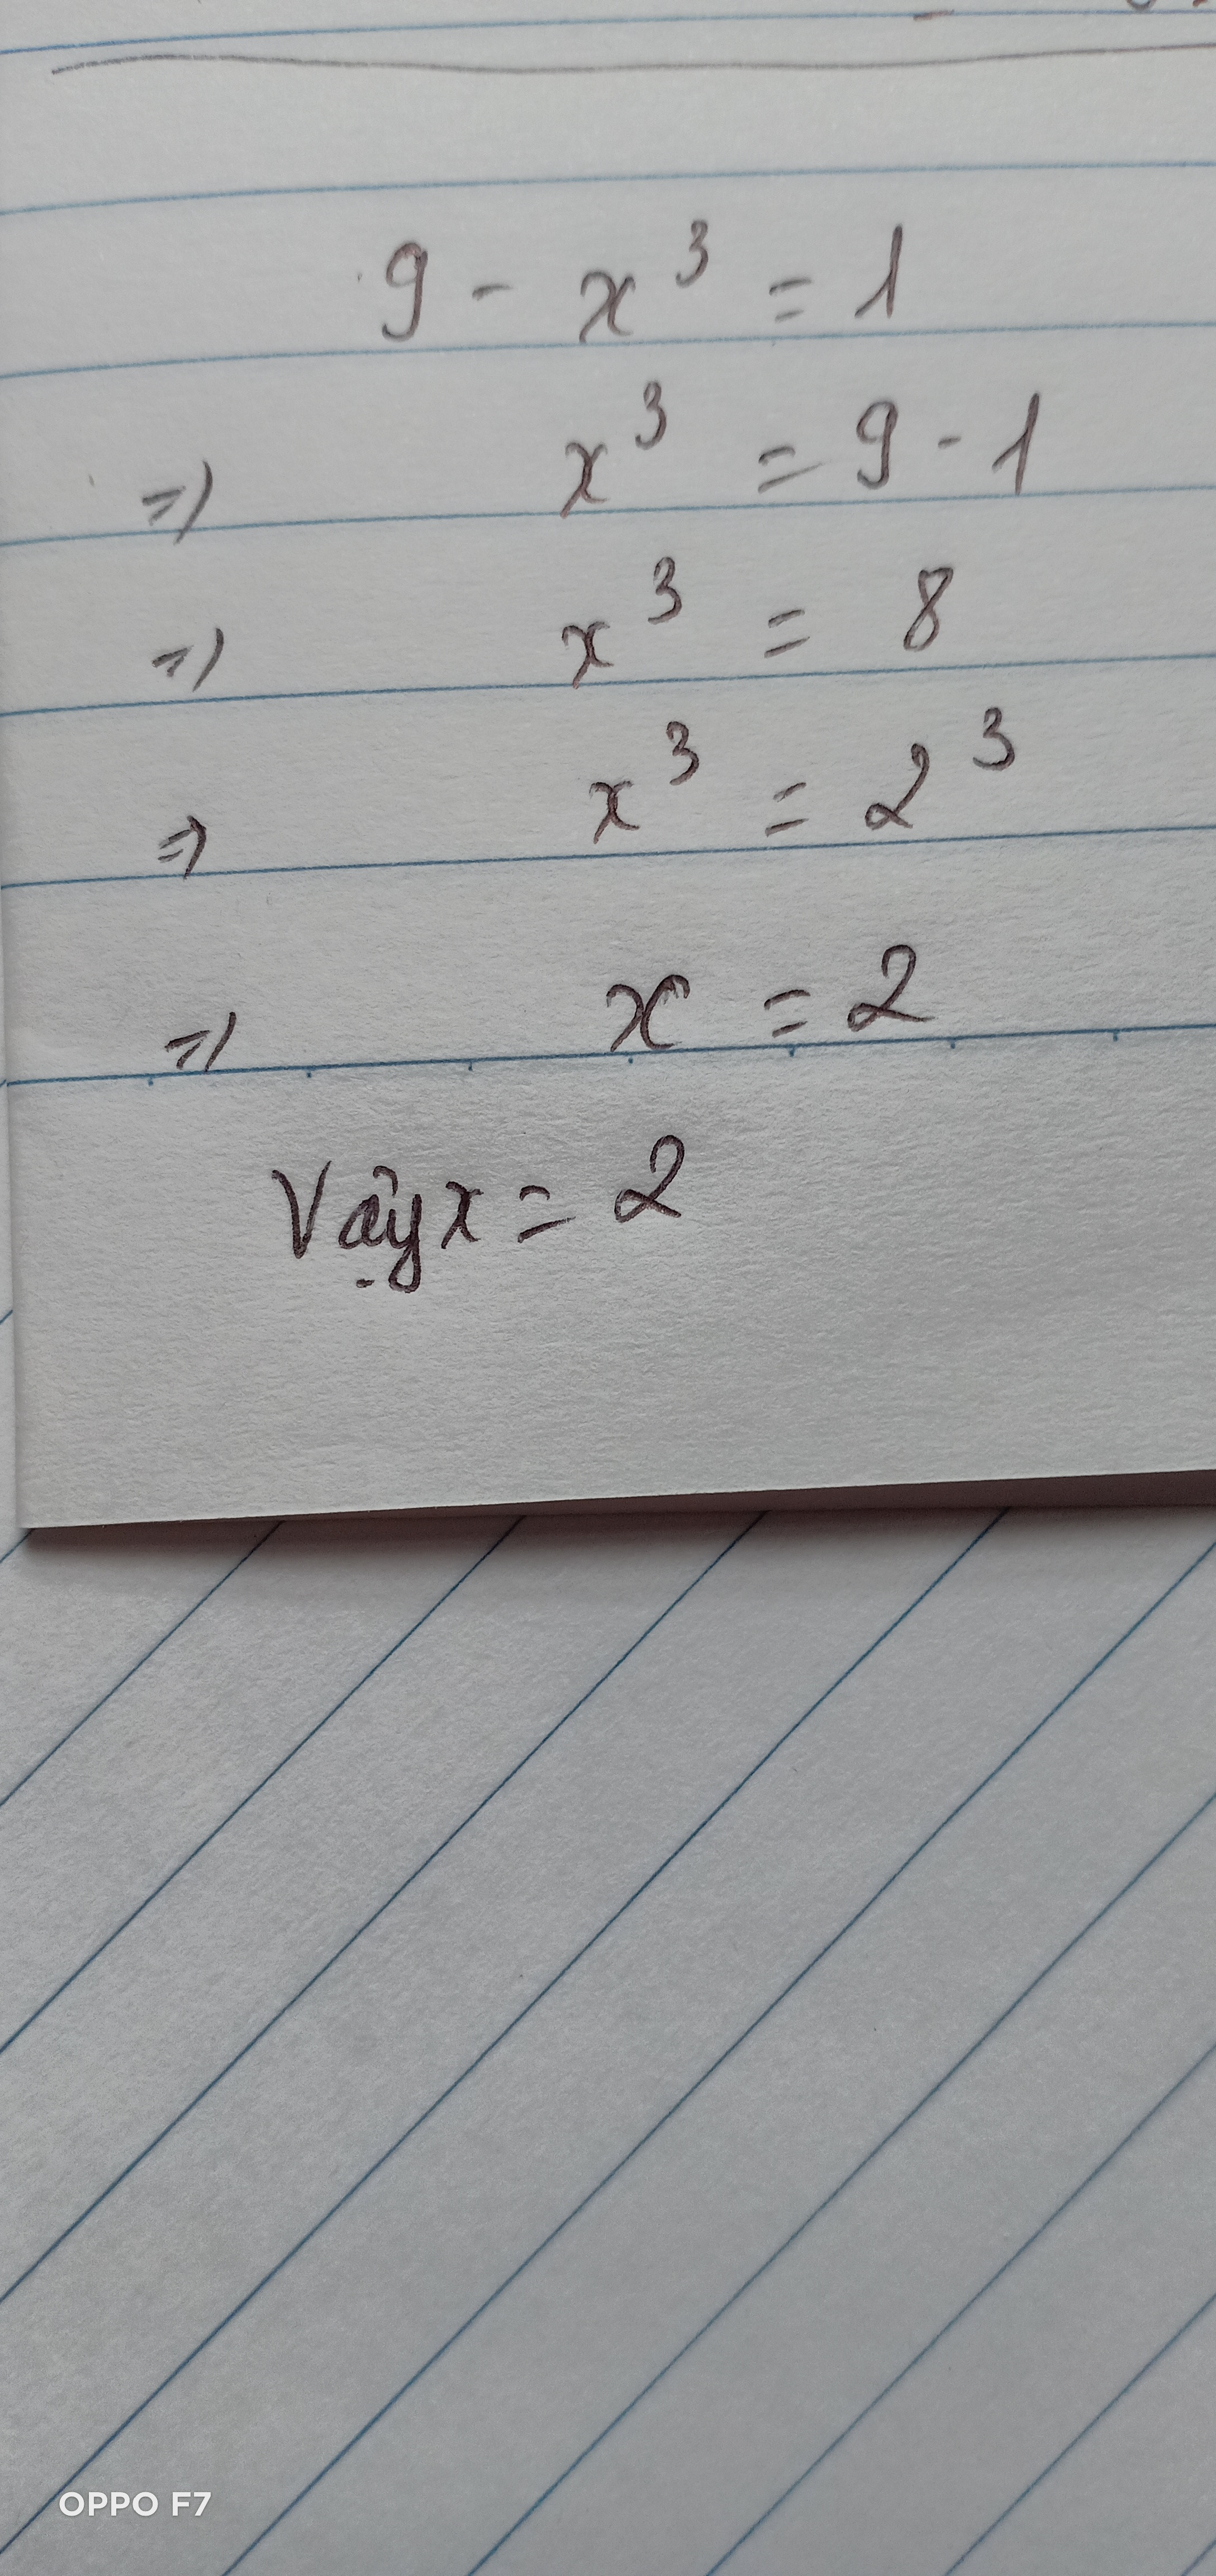 9 - x³ = 1
=) x³ = 9 - 1
=) x³ = 8
=) x³ = 2³
=) x = 2
Vậy x = 2
OPPO F7